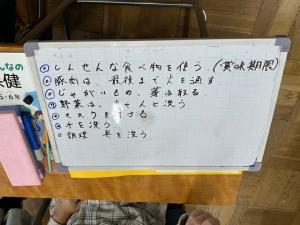 んなの
保健
5・6年
しんせんな食べ物を使う(賞味期限)
豚肉は、最後まで火を通す
じゃがいもの、芽は取る。
野菜は、ちゃんと洗う
マスクを付ける
手を洗う
調理 具を洗う